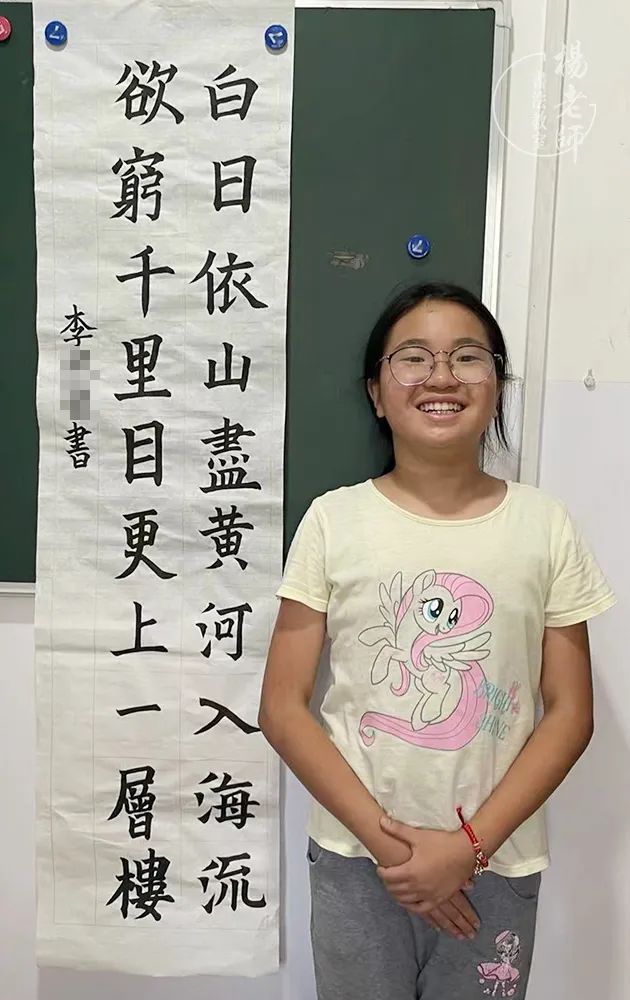 白日依山盡黃河入海流
欲窮千里目更上一層樓
李
書
楊老師
書法教室
BRIGHT
SHINE